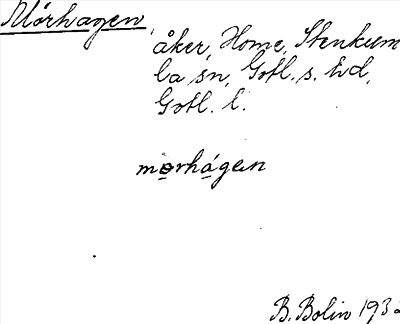 Mörhagen,
åker, Home, Stenkum
la sn, Gotl. s. hd,
Gotl. l.
morhágen
B. Bolin 193